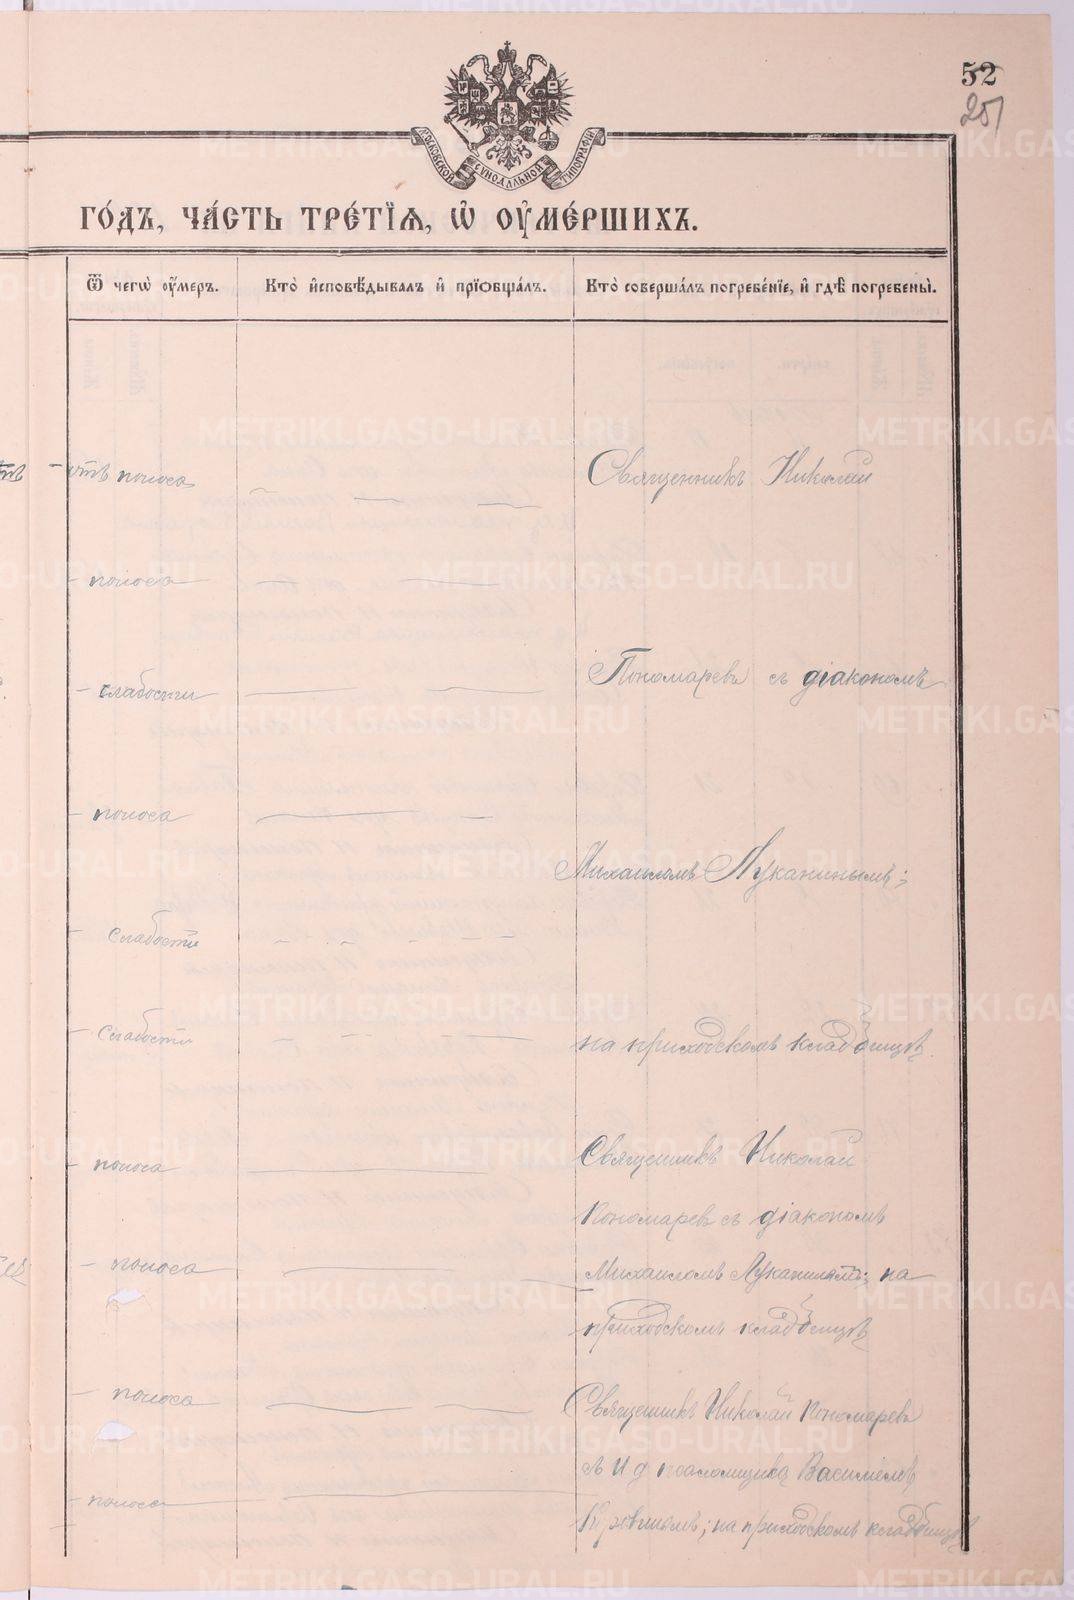 52
251
МОСКОВСКОЙ СѴНОДАЛЬНОЙ ТИПОГРАФІИ
ГО́ДЪ, ЧА́СТЬ ТРЕ́ТЇѦ, Ѽ ОУ҆МЕ́РШИХЪ.
Ѿ чегѡ̀ оу҆́меръ.
Кто̀ и҆сповѣ́дывалъ и҆ прїѡбща́лъ.
Кто̀ соверша́лъ погребе́нїе, и҆ гдѣ̀ погребены̀.
отъ поноса
Священникъ Николай
поноса
слабости
Пономаревъ съ діакономъ
поноса
Михаиломъ Луканинымъ;
Слабости
Слабости
на приходскомъ кладбищѣ.
поноса
Священникъ Николай
Пономаревъ съ діакономъ
поноса
Михаиломъ Луканинымъ; на
приходскомъ кладбищѣ
поноса
Священникъ Николай Пономаревъ
съ И д псаломщика Василіемъ
поноса
на приходскомъ кладбищѣ
METRIKI.GASO-URAL.RU